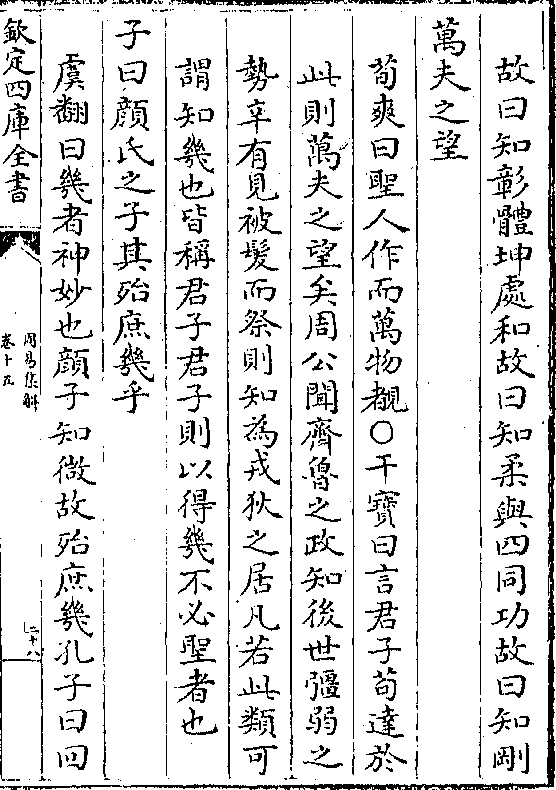 故曰知彰體坤處和故曰知柔與四同功故曰知剛
萬夫之望
荀爽曰聖人作而萬物覩○干寶曰言君子苟達於
此則萬夫之望矣周公聞齊魯之政知後世彊弱之
勢辛有見被髮而祭則知為戎狄之居凡若此類可
謂知幾也皆稱君子君子則以得幾不必聖者也
子曰顔氏之子其殆庶幾乎
虞翻曰幾者神妙也顔子知微故殆庶幾孔子曰回
欽定四庫全書
周易集解
卷十五
二十八